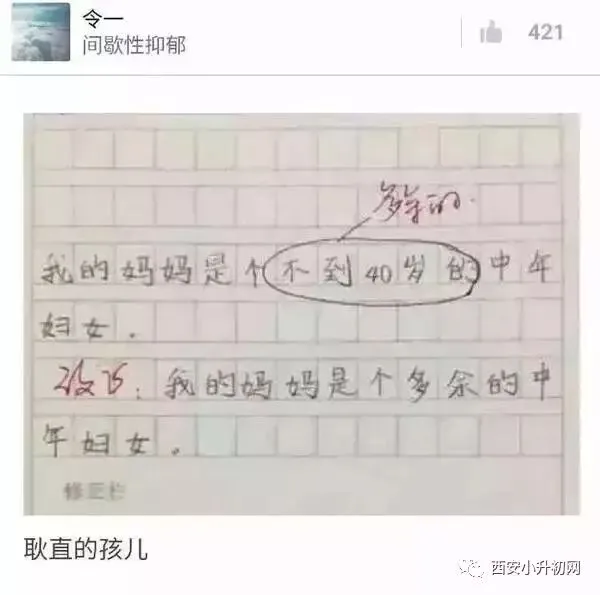 令一
间歇性抑郁
421
多余的.
我的妈妈是个不到40岁的中年
妇女.
改巧:我的妈妈是个多余的中
年妇女。
修正栏
耿直的孩儿
西安小升初网